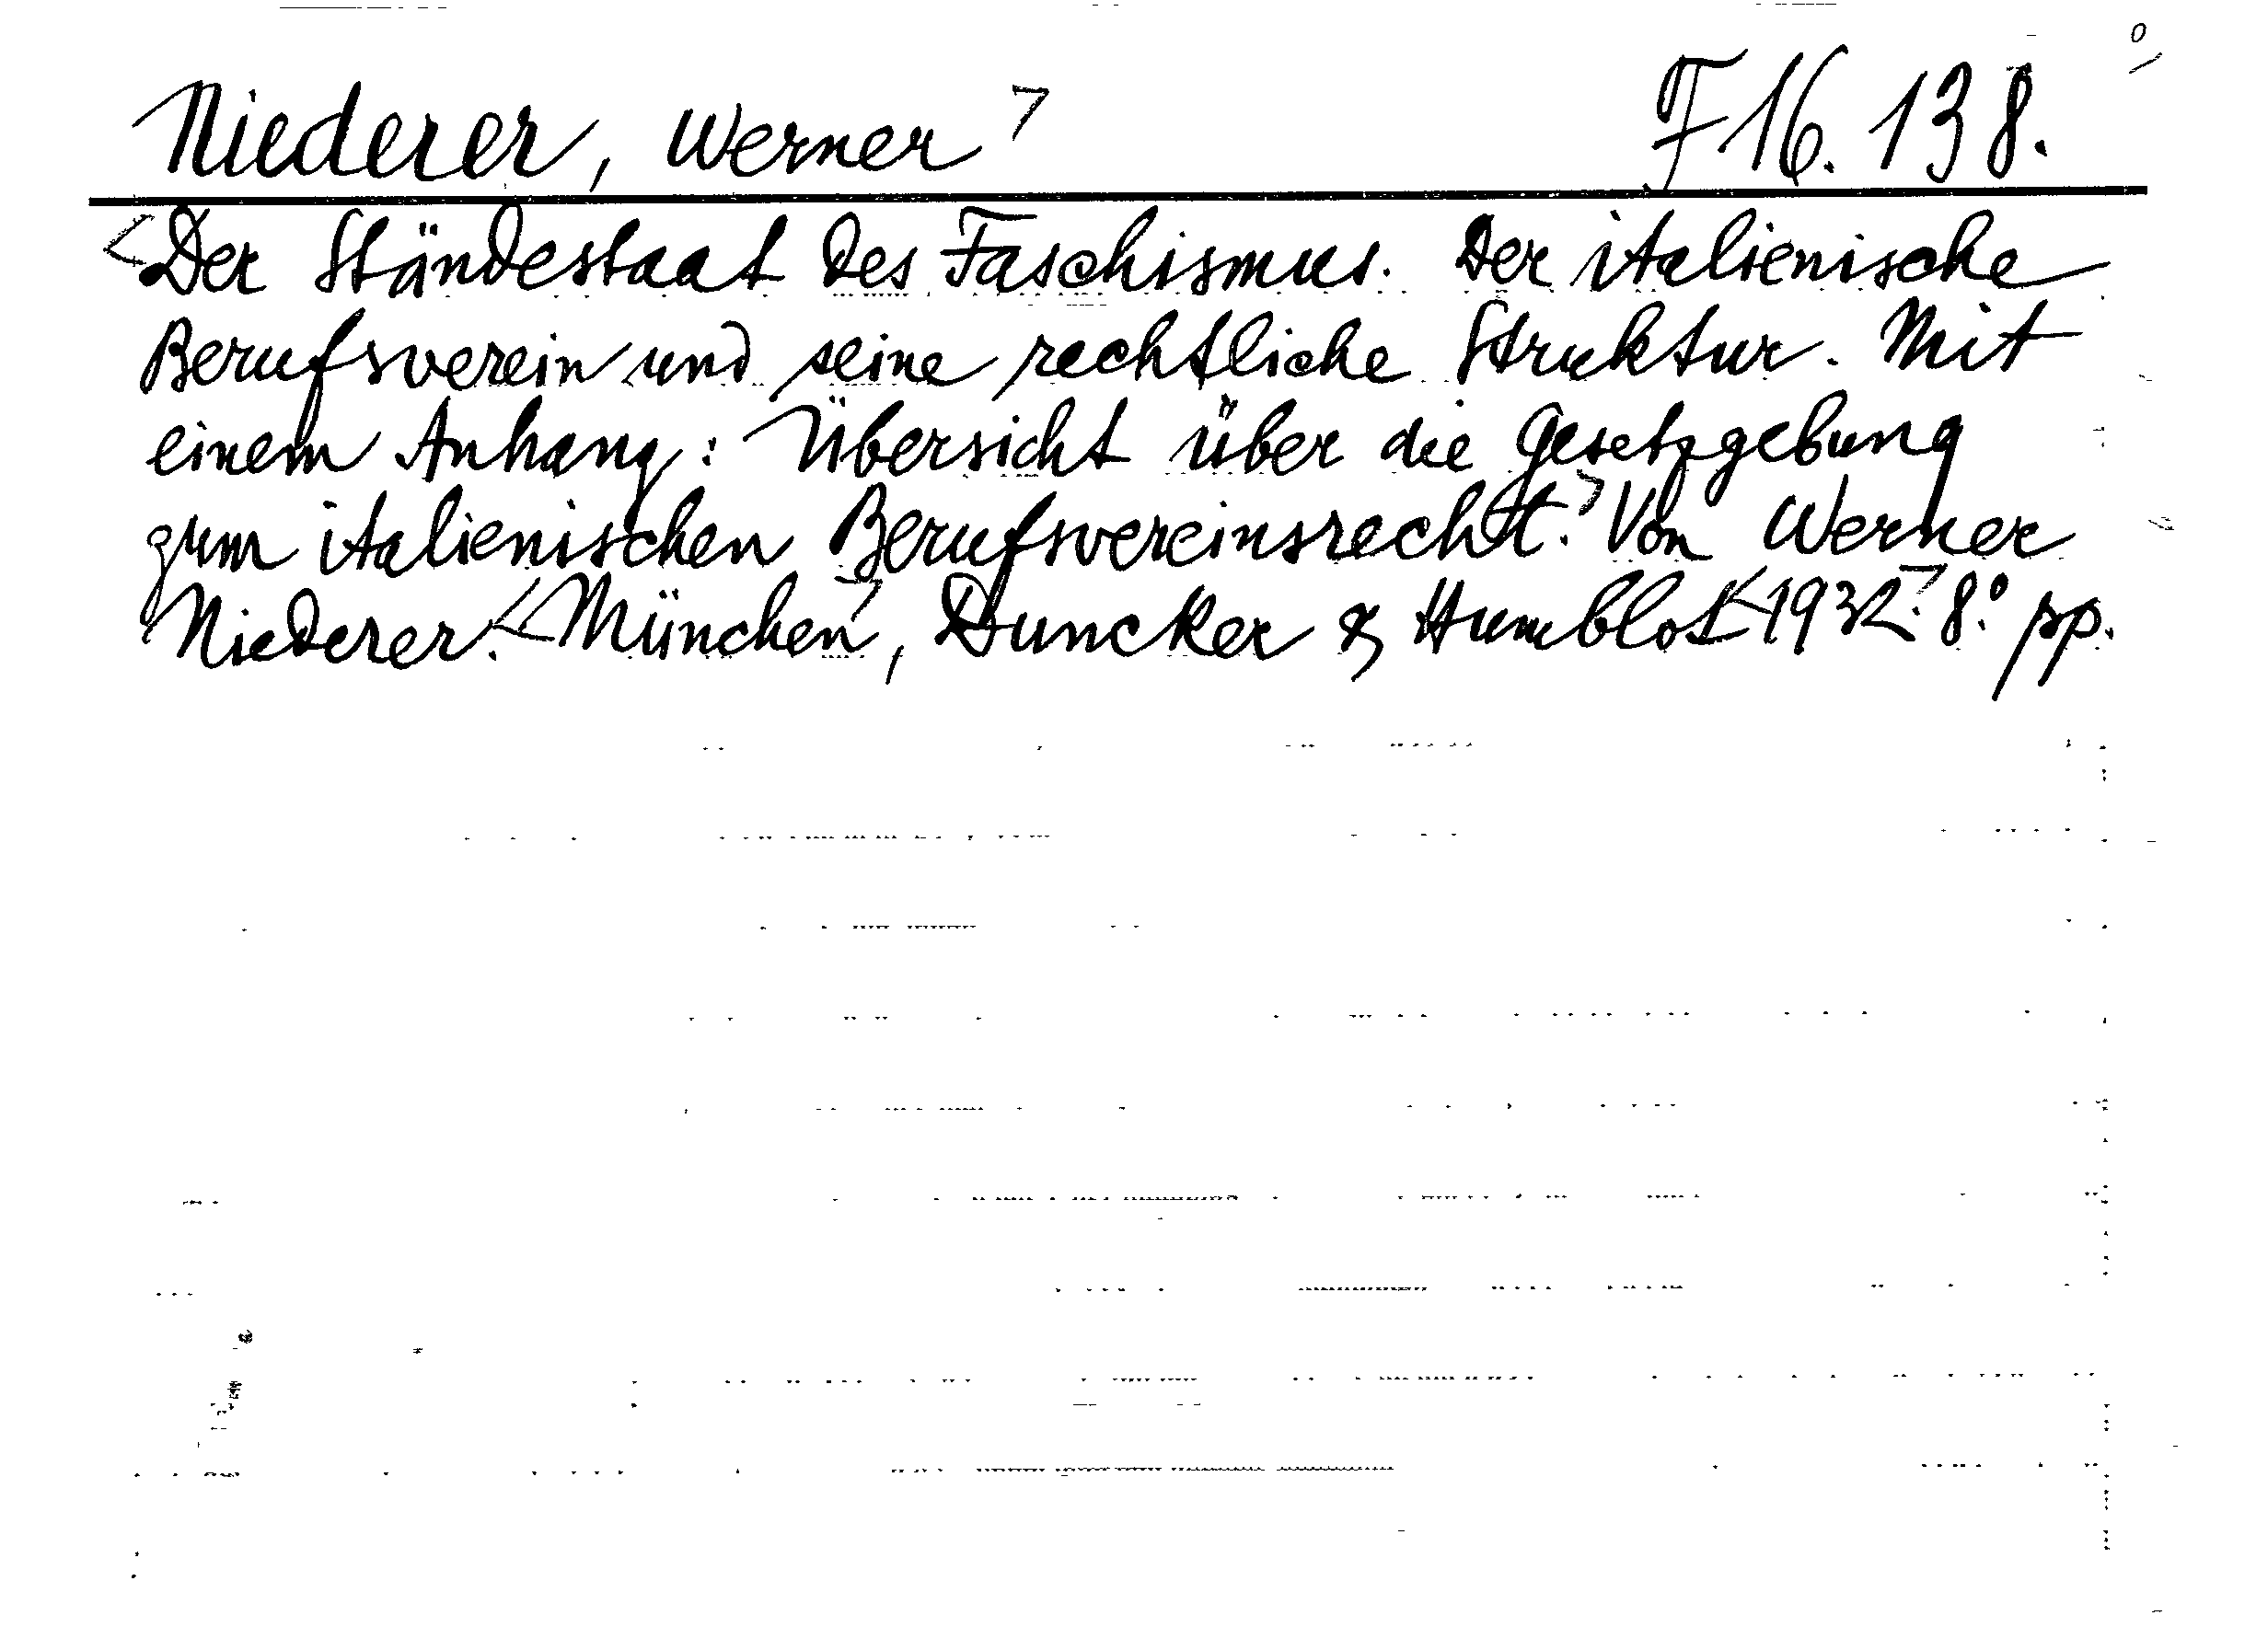 Niederer, Werner F 16. 138.
Der Ständestaat des Faschismus. Der italienische
Berufsverein und seine rechtliche Struktur. Mit
einem Anhang: Übersicht über die Gesetzgebung
zum italienischen Berufsvereinsrecht. Von Werner
Niederer. München, Duncker & Humblot 1932. 8.° pp.